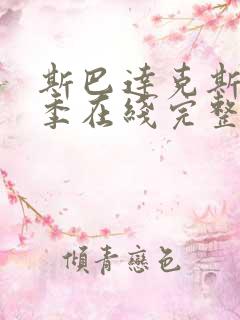 斯巴達克斯
季在綫完整
傾青戀色